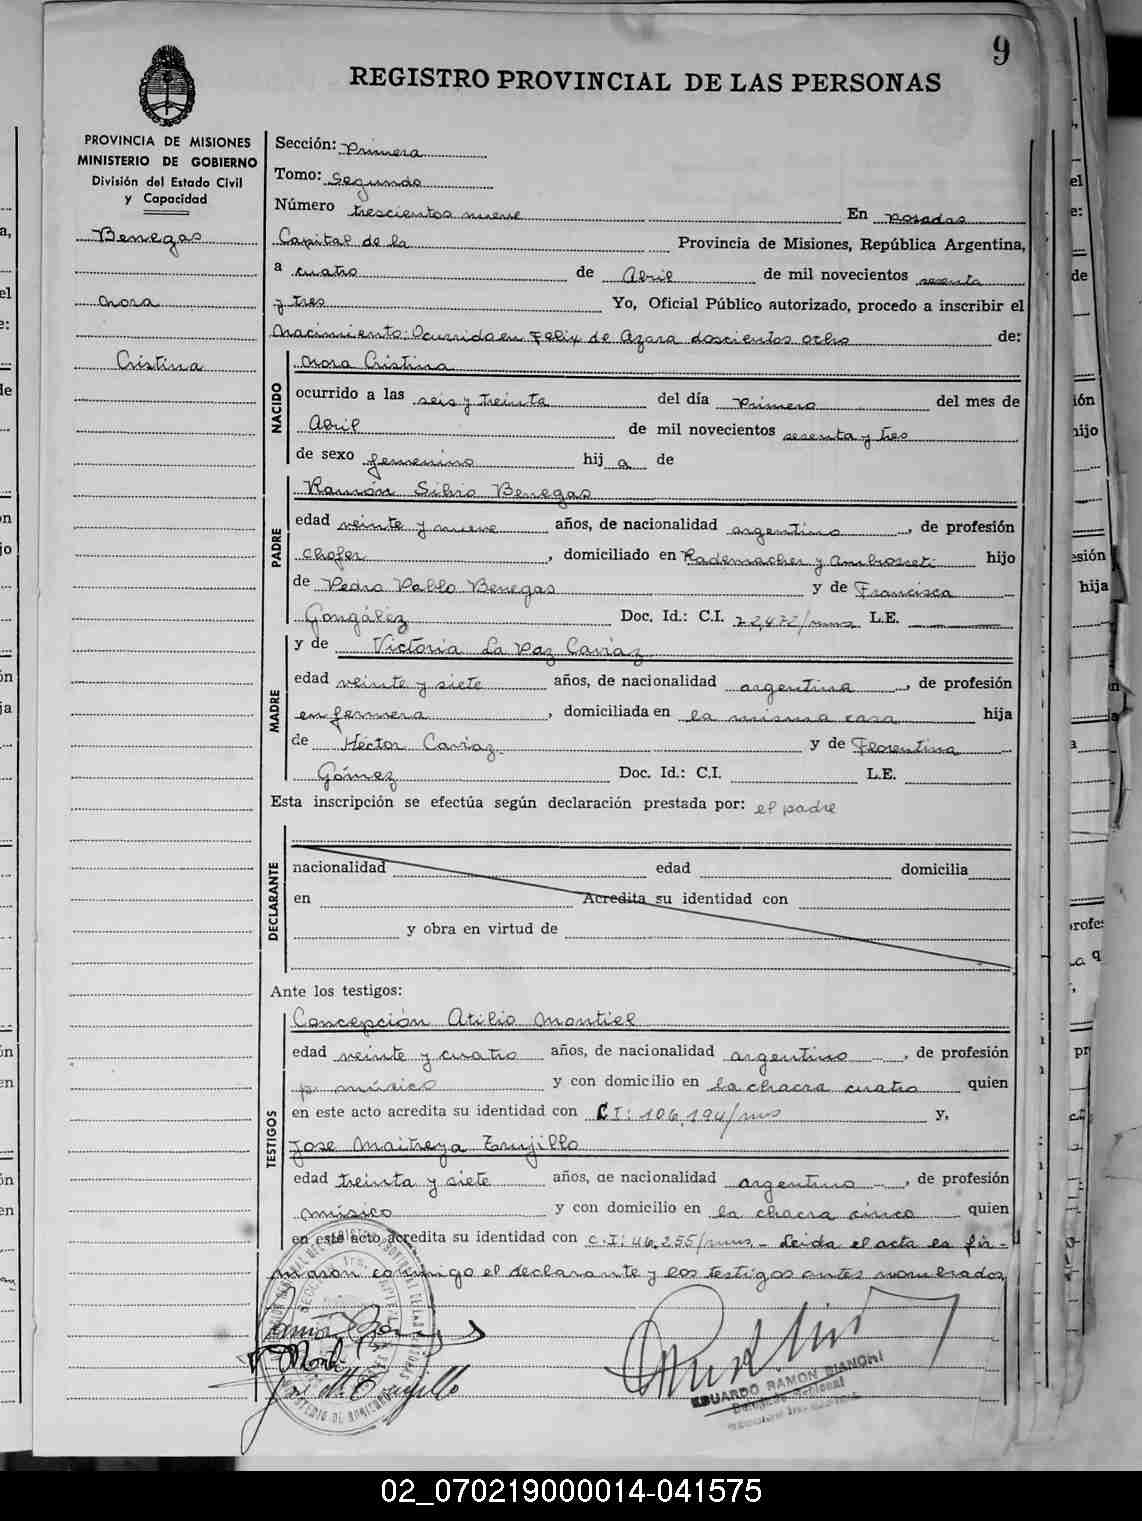 9
REGISTRO PROVINCIAL DE LAS PERSONAS
PROVINCIA DE MISIONES
MINISTERIO DE GOBIERNO
División del Estado Civil
y Capacidad
Benegas
Nora
Cristina
Sección: Primera
Tomo: Segundo
Número trescientos nueve En Posadas
Capital de la Provincia de Misiones, República Argentina,
a cuatro de Abril de mil novecientos sesenta
y tres Yo, Oficial Público autorizado, procedo a inscribir el
Nacimiento: Ocurrido en Felix de Azara doscientos ocho de:
NACIDO
Nora Cristina
ocurrido a las seis y treinta del día primero del mes de
Abril de mil novecientos sesenta y tres
de sexo femenino hij a de
PADRE
Ramón Silvio Benegas
edad veinte y nueve años, de nacionalidad argentino, de profesión
chofer, domiciliado en Rademacher y Ambrosetti hijo
de Pedro Pablo Benegas y de Francisca
González Doc. Id.: C.I. 72,472/mnes L.E.
MADRE
y de Victoria La Paz Cariaz
edad veinte y siete años, de nacionalidad argentina, de profesión
enfermera, domiciliada en la misma casa hija
de Héctor Cariaz y de Florentina
Gómez Doc. Id.: C.I. L.E.
Esta inscripción se efectúa según declaración prestada por: el padre
DECLARANTE
nacionalidad edad domicilia
en Acredita su identidad con
y obra en virtud de
Ante los testigos:
TESTIGOS
Concepción Atilio Montiel
edad veinte y cuatro años, de nacionalidad argentino, de profesión
músico y con domicilio en la chacra cuatro quien
en este acto acredita su identidad con C.I: 106,194/mns y,
Jose Maitreya Trujillo
edad treinta y siete años, de nacionalidad argentino, de profesión
músico y con domicilio en la chacra cinco quien
en este acto acredita su identidad con C.I: 46,255/mns.- Leida el acta la fir-
maron conmigo el declarante y los testigos antes nombrados
EDUARDO RAMON BIANCHI
02_070219000014-041575